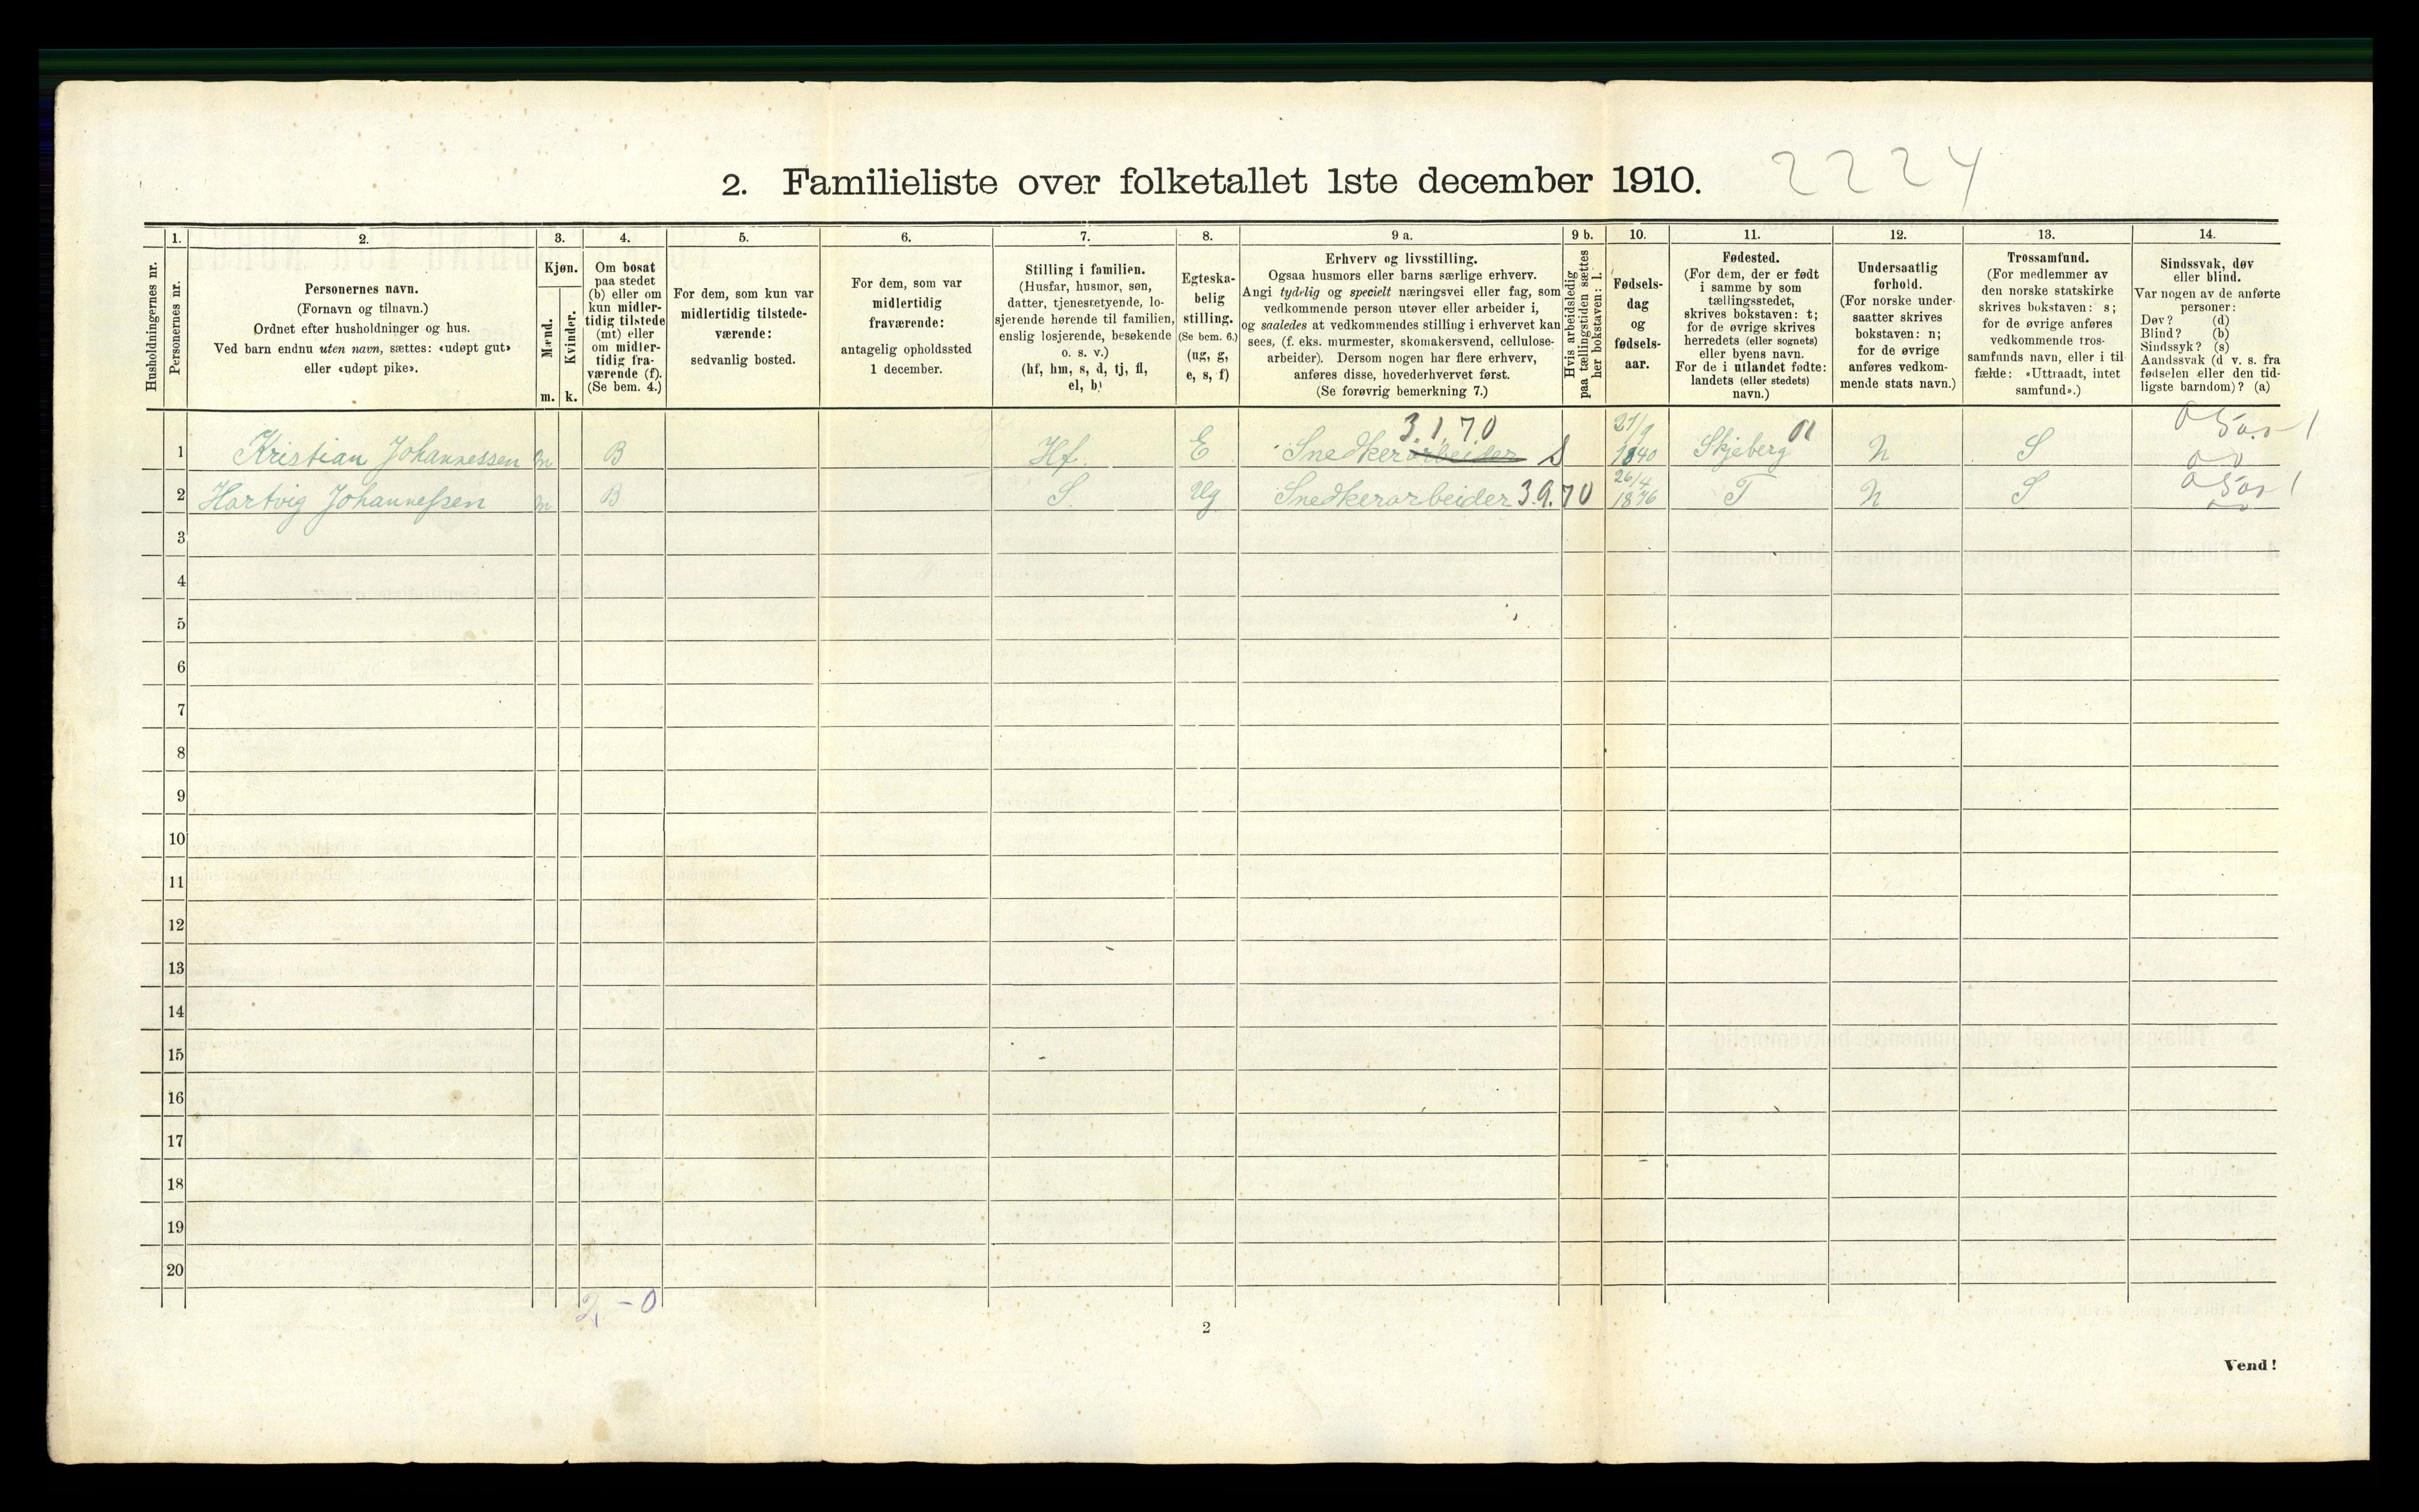 2. Familieliste over folketallet 1ste december 1910. 2224
Husholdningernes nr.
1.
Personernes nr.
2.
Personernes navn.
(Fornavn og tilnavn.)
Ordnet efter husholdninger og hus.
Ved barn endnu uten navn, sættes: «udøpt gut»
eller «udøpt pike».
3.
Kjøn.
Mænd.
m.
Kvinder.
k.
4.
Om bosat
paa stedet
(b) eller om
kun midler-
tidig tilstede
(mt) eller
om midler-
tidig fra-
værende (f).
(Se bem. 4.)
5.
For dem, som kun var
midlertidig tilstede-
værende:
sedvanlig bosted.
6.
For dem, som var
midlertidig
fraværende:
antagelig opholdssted
1 december.
7.
Stilling i familien.
(Husfar, husmor, søn,
datter, tjenestetyende, lo-
sjerende hørende til familien,
enslig losjerende, besøkende
o. s. v.)
(hf, hm, s, d, tj, fl,
el, b)
8.
Egteska-
belig
stilling.
(Se bem. 6.)
(ug, g,
e, s, f)
9 a.
Erhverv og livsstilling.
Ogsaa husmors eller barns særlige erhverv.
Angi tydelig og specielt næringsvei eller fag, som
vedkommende person utøver eller arbeider i,
og saaledes at vedkommendes stilling i erhvervet kan
sees, (f. eks. murmester, skomakersvend, cellulose-
arbeider). Dersom nogen har flere erhverv,
anføres disse, hovederhvervet først.
(Se forøvrig bemerkning 7.)
9 b.
Hvis arbeidsledig
paa tællingstiden sættes
her bokstaven: l.
10.
Fødsels-
dag
og
fødsels-
aar.
11.
Fødested.
(For dem, der er født
i samme by som
tællingsstedet,
skrives bokstaven: t;
for de øvrige skrives
herredets (eller sognets)
eller byens navn.
For de i utlandet fødte:
landets (eller stedets)
navn.)
12.
Undersaatlig
forhold.
(For norske under-
saatter skrives
bokstaven: n;
for de øvrige
anføres vedkom-
mende stats navn.)
13.
Trossamfund.
(For medlemmer av
den norske statskirke
skrives bokstaven: s;
for de øvrige anføres
vedkommende tros-
samfunds navn, eller i til-
fælde: «Uttraadt, intet
samfund».)
14.
Sindssvak, døv
eller blind.
Var nogen av de anførte
personer:
Døv? (d)
Blind? (b)
Sindssyk? (s)
Aandssvak (d v. s. fra
fødselen eller den tid-
ligste barndom)? (a)
3.1.70
1 Kristian Johannessen m B Hf. E Snedkerarbeider S 27/9 1840 Skjeberg 01 N S
2 Hartvig Johannessen m B S. Ug Snedkerarbeider 3.9.70 26/4 1876 T N S
3
4
5
6
7
8
9
10
11
12
13
14
15
16
17
18
19
20
2 - 0
2
Vend!